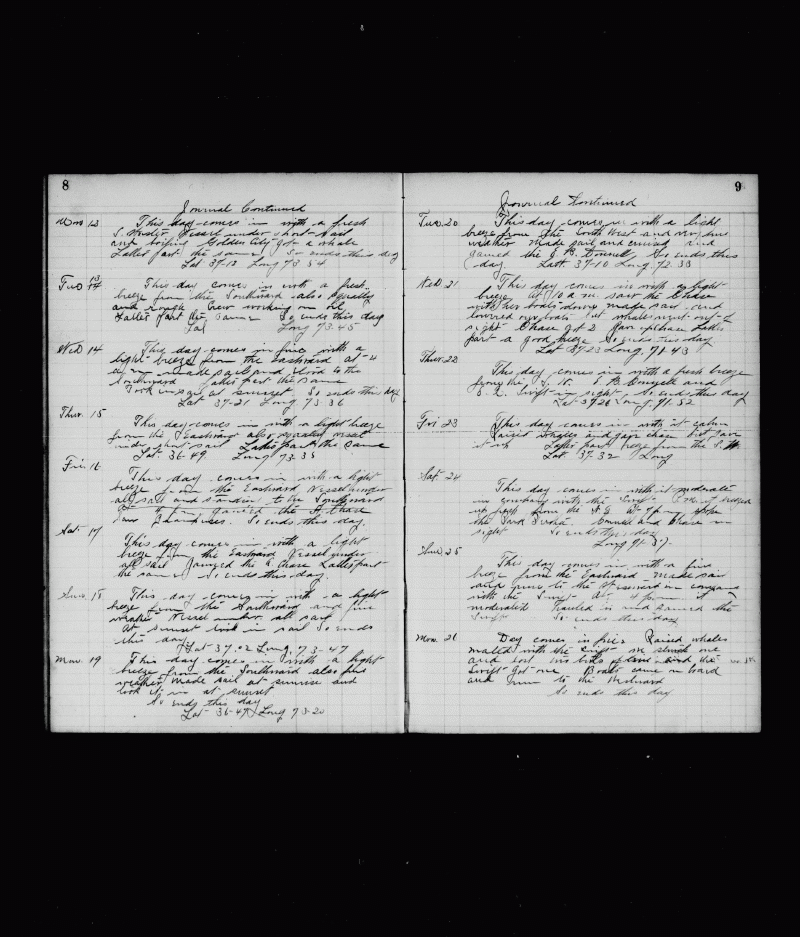 8
Journal Continued
Mon 12 This day comes in with a fresh
S. Vessel under short sail
and boiling Golden City got a whale
Latter part the same So ends this day
Lat 37-13 Long 73-54
Tue 13 This day comes in with a fresh
breeze from the Southward also squally
and rough Crew working on
Latter part the same So ends this day
Lat Long 73-45
Wed 14 This day comes in fine with a
light breeze from the Eastward at 4
made sail and stood to the
Southward Latter part the same
Took in sail at sunset So ends this day
Lat 37-21 Long 73-36
Thur. 15 This day comes in with a light breeze
from the Eastward also vessel
under short sail Latter part the same
Lat. 36-49 Long 73-35
Fri. 16 This day comes in with a light
breeze from the Eastward Vessel under
all sail and standing to the Southward
gamed the A. Chase
So ends this day
Sat. 17 This day comes in with a light
breeze from the Eastward Vessel under
all sail Gamed the A Chase Latter part
the same So ends this day.
Sun. 18 This day comes in with a light
breeze from the Southward and fine
weather Vessel under all sail
At sunset took in sail So ends
this day
Lat 37.02 Long. 73-47
Mon. 19 This day comes in with a light
breeze from the Southward also fine
weather Made sail at sunrise and
took it in at sunset
So ends this day
Lat 36-47 Long 73-20
9
Journal Continued
Tue. 20 This day comes in with a light
breeze from the South West and very fine
weather made sail and cruised and
gamed the So ends this
day Latt 37-10 Long. 72-33
Wed. 21 This day comes in with a light
breeze At 10 a.m. saw the Chase
with her boats down made sail and
lowered our boats but whales went out of
sight Chase got 2 Latter
part a good breeze So ends this day
Lat 37-23 Long. 71-43
Thur. 22 This day comes in with a fresh breeze
from the S.W. and
Swift in sight So ends this day
Lat 37-26 Long 71-52
Fri 23 This day comes in with it calm
Raised whales and gave chase but gave
it up Latter part breeze from the S.W.
Lat. 37-32 Long
Sat. 24 This day comes in with it moderate
in company with the Swift breezed
up fresh from the N.E. At 7 p.m. spoke
the and Chase in
sight So ends this day
Long 71-37
Sun. 25 This day comes in with a fine
breeze from the Eastward Made sail
and run to the Westward in company
with the Swift At 4 p.m. it
moderated Hauled in and gamed the
Swift So ends this day
Mon. 26 Day comes in fine Raised whales
mated with the Swift we struck one
and lost him the
Swift got one Boats came on board
and run to the Westward
So ends this day